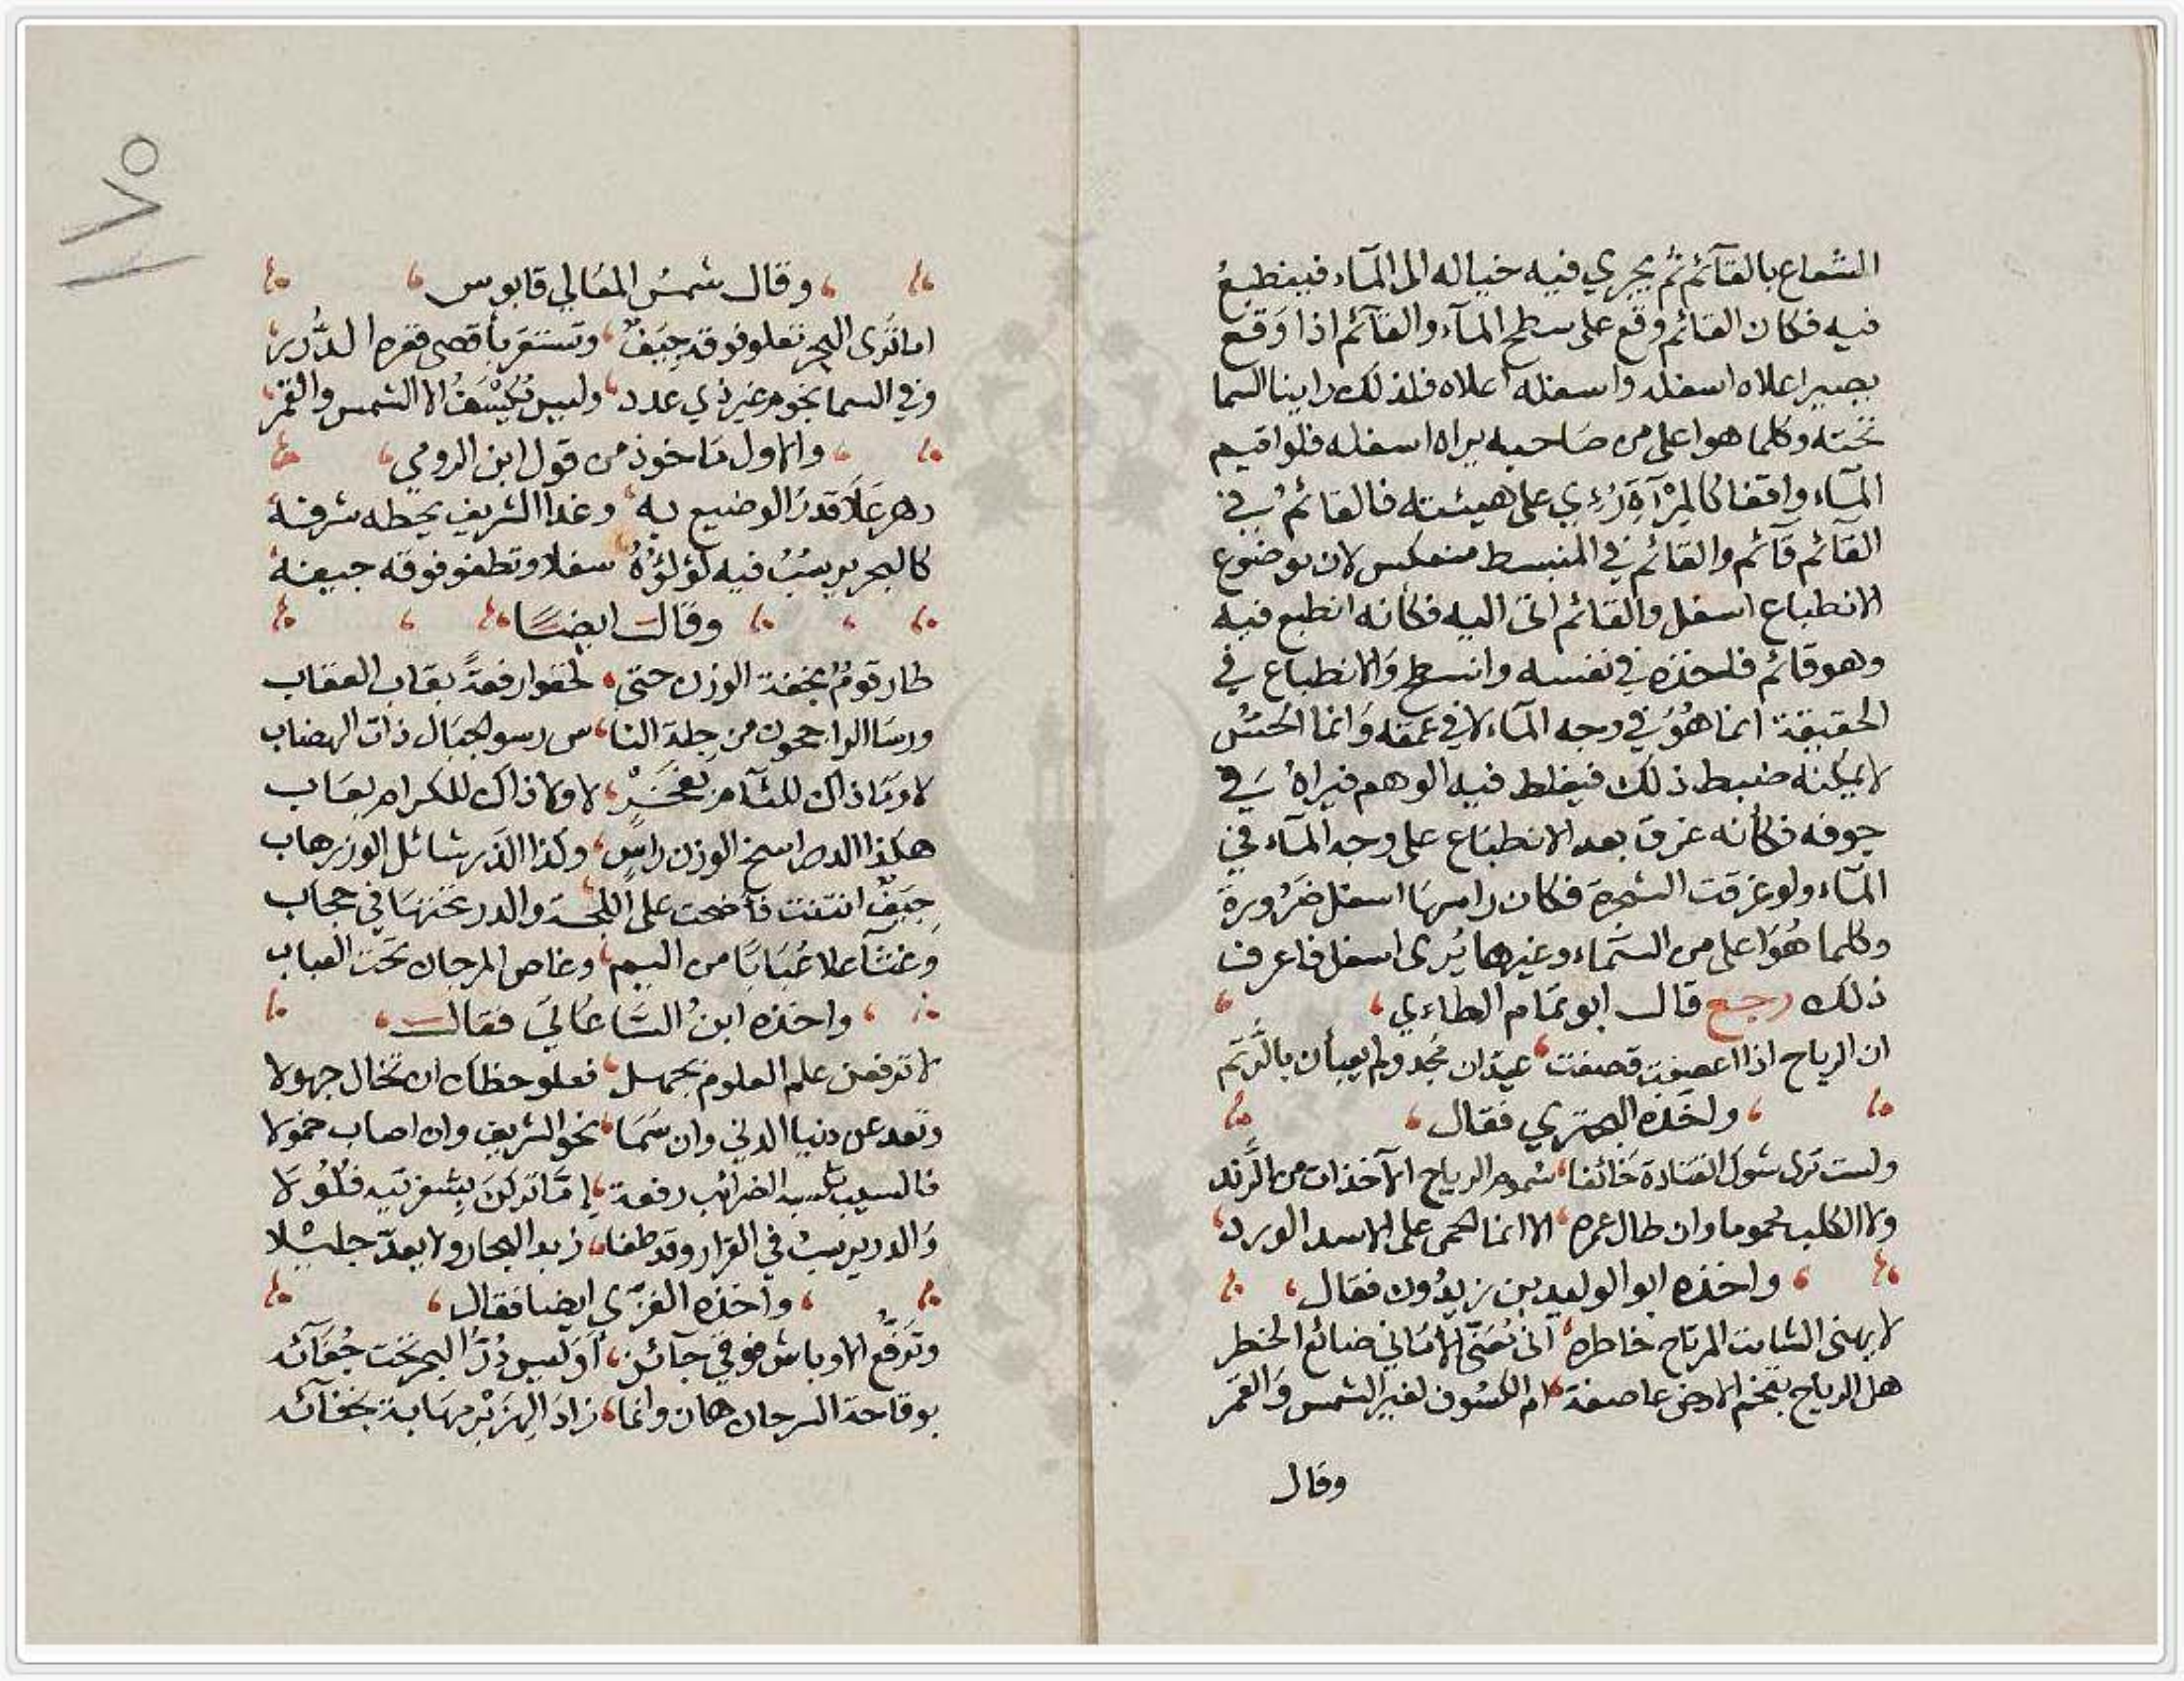 الشعاع بالقآئم ثم يجري فيه خياله الى المآء فينطبع
فيه فكان القائم وقع على سطح المآء والقآئم اذا وقع
يصير اعلاه اسفله واسفله اعلاه فلذلك راينا السما
تحته وكلما هو اعلى من صاحبه يراه اسفله فلو اقيم
المآء واقفا كالمرآة رُءِي على هيئته فالقائم في
القآئم قآئم والقائم في المنبسط منعكس لان موضوع
الانطباع اسفل والقائم اتى اليه فكأنه انطبع فيه
وهو قائم فلخذه في نفسه وانسطح والانطباع في
الحقيقة انما هُوَ في وجه المآء لا في عمقه وانما الحسّ
لا يمكنه ضبط ذلك فيغلط فيه الوهم فيراهُ في
جوفه فكأنه غرق بعد الانطباع على وجه المآء في
المآء ولو غرقت الشجرة فكان راسها اسفل ضرورة
وكلما هُوَ اعلى من السّماء وغيرها يُرى اسفل فاعرف
ذلك رجع قال ابو تمام الطاءي
ان الرياح اذا اعصفت قصفت عيدان نجد ولم يعبأن بالرّتم
واخذه البحتري فقال
ولست ترى شوك القتادة خائفا سموم الرياح الآخذات من الرّند
ولا الكلب محموما وان طال عمره الا انما الحمى على الاسد الورد
واخذه ابو الوليد بن زيدُون فقال
لا يهنى الشامت المرتاح خاطره انى مُعَنّى الأماني ضائع الخطر
هل الرياح بنجم الارض عاصفة ام الكسُوف لغير الشمس وَالقمر
وقال
١٧٥
وقال شمسُ المعَالي قابوس
اما تَرى البحر تعلو فوقه جِيَفٌ وتستقر بأقصى قعره الدُّرر
وفي السما نجوم غير ذي عدد وليس يُكْسَفُ الا الشمس والقمر
والاول مَاخوذ من قول ابن الرومي
دهر عَلَا قدرُ الوضيع به وغدا الشريف يحطه شرفه
كالبحر يرسُبُ فيه لؤلؤُهُ سفلا وتطفو فوقه جيفه
وقال ايضًا
طار قومٌ بخفة الوزن حتى لحقوا رفعةً بقاب العقاب
ورسَا الراجحون من جلة النا س رسو الجبَال ذات الهضاب
لا ومَا ذاك للئآم بفخر لا ولا ذاك للكرام بعَاب
هكذا الصخر راسخ الوزن راسٍ وكذا الذر شائل الوزن هاب
جِيَفٌ انتنت فأضحت على اللجـة والدر تحتهَا في حجاب
وغثآء علا عُبَابًا من اليم وغاص المرجان تحت العباب
واخذه ابنُ السَّاعَاتي فقال
لا ترفعن علم العلوم بجهل فعلو حظك ان تخال جهولا
وتعد عن دنيا الدني وان سَمَا نحو الشريف وان اصاب خمولا
فالسيب الضرائب رفعة إمَّا تركنَ بشفرتيه فلُولا
وَالدر يرسب في القرار وقد طفا زبد البحار ولا يعدّ جليْلا
واخذه الغزّي ايضا فقال
وتَرَفّعُ الاوباش فوقي جآئز أوَليس دُرُّ البحر تحت جُفَآئه
بوقاحة السرحان هان وانما زادَ الهِزَبْر مهَابة بخفآئه